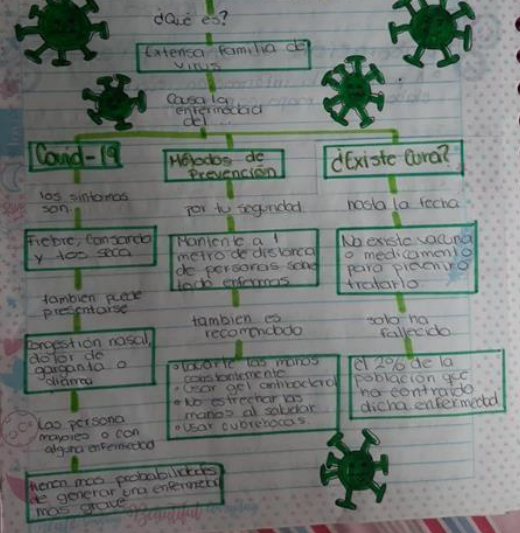 ¿Qué es?
Extensa familia de
virus
Causa la
enfermedad
del...
Covid-19
los sintomas
son
Fiebre, Cansancio
y tos seca
tambien puede
presentarse
Congestion nasal,
dolor de
garganta o
diarrea
Las persona
mayores o con
alguna enfermedad
tienen mas probabilidades
de generar una enfermedad
mas grave
Métodos de
Prevención
por tu seguridad
Mantente a 1
metro de distancia
de personas sobre
todo enfermas
tambien es
recomendado
• Lavarte las manos
constantemente
• Usar gel antibacterial
• No estrechar las
manos al saludar
• Usar cubrebocas
¿Existe Cura?
hasta la fecha
No existe vacuna
o medicamento
para prevenir o
tratarlo
solo ha
fallecido
el 2% de la
población que
ha contraido
dicha enfermedad
Beautiful